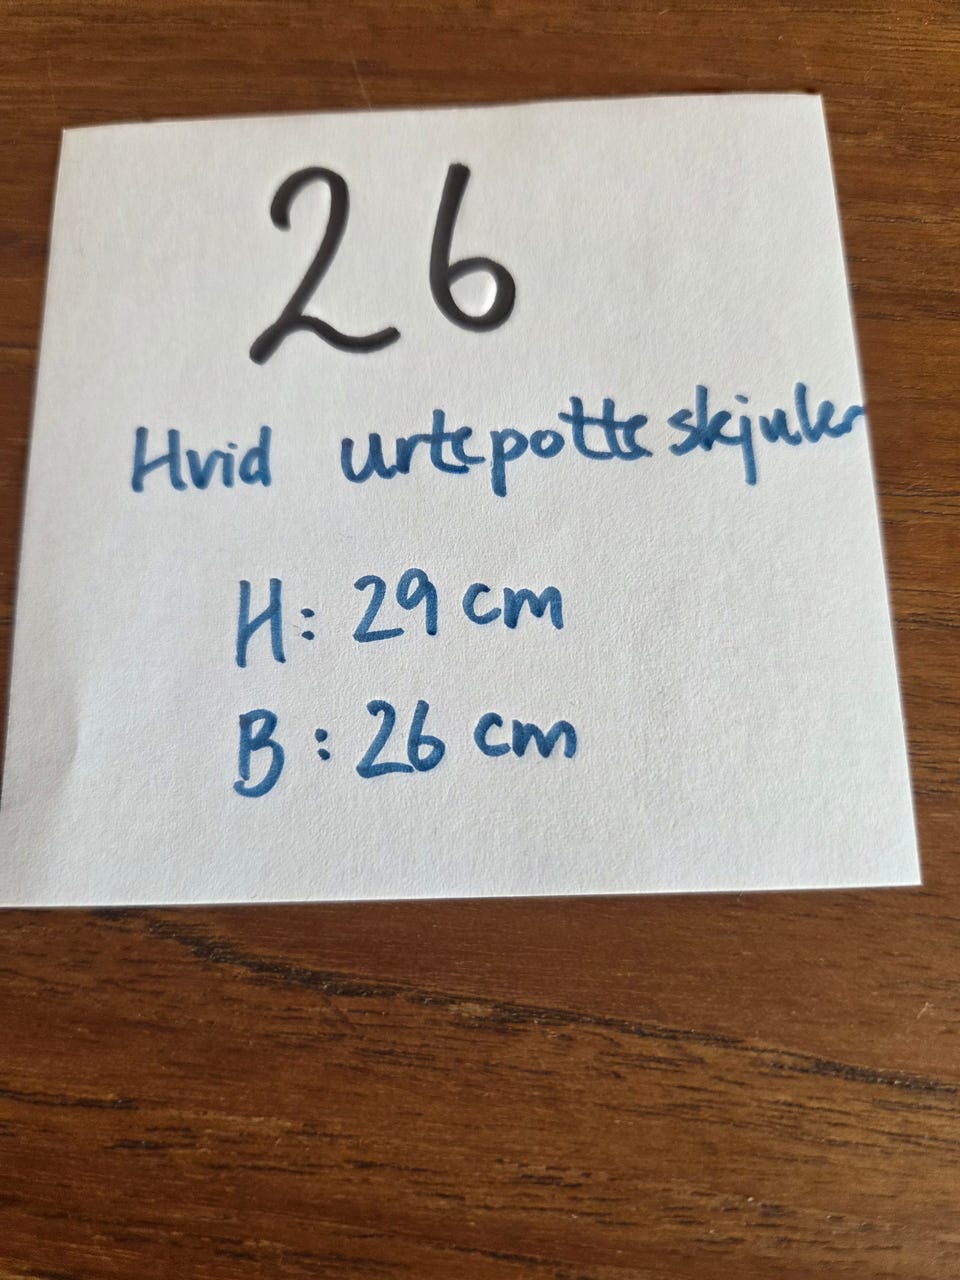 26
Hvid urtepotteskjuler
H: 29 cm
B: 26 cm